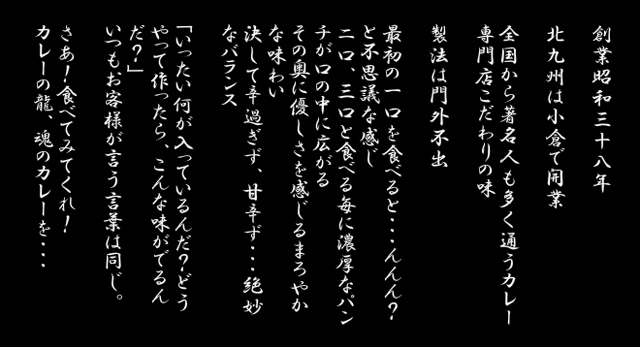 創業昭和三十八年
北九州は小倉で開業
全国から著名人も多く通うカレー
専門店こだわりの味
製法は門外不出
最初の一口を食べると・・・んんん？
と不思議な感じ
二口、三口と食べる毎に濃厚なパン
チが口の中に広がる
その奥に優しさを感じるまろやか
な味わい
決して辛過ぎず、甘辛ず・・・絶妙
なバランス
「いったい何が入っているんだ？どう
やって作ったら、こんな味がでるん
だ？」
いつもお客様が言う言葉は同じ。
さあ！食べてみてくれ！
カレーの龍、魂のカレーを・・・